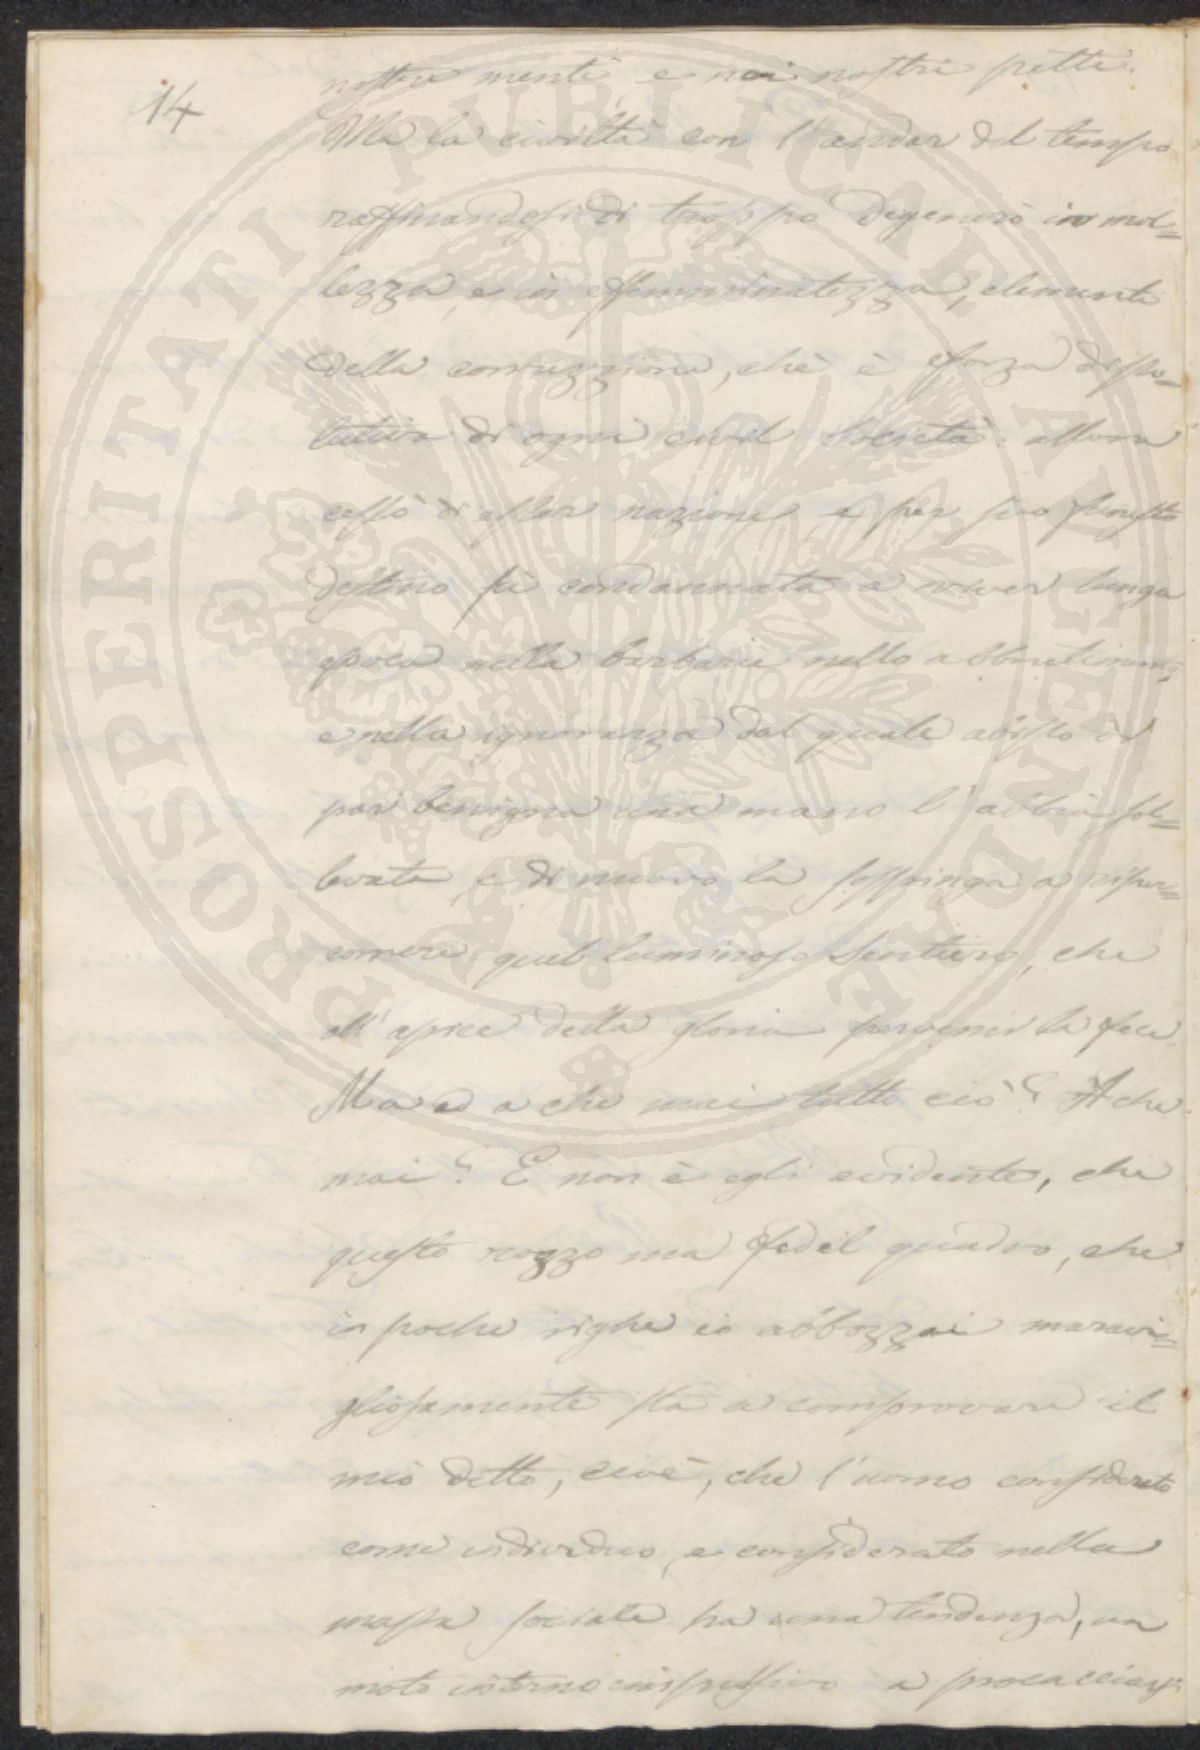 14
nostre menti, e nei nostri petti.
Ma la civiltà con l'andar del tempo
raffinandosi di troppo degenerò in mol=
lezza, e in effemminatezza, elementi
della corruzzione, chè è forza disso=
lutiva di ogni civil Società: allora
cessò di esser nazione e per suo funesto
destino fù condannata a viver lunga
epoca nella barbarie nello abbrutimento,
e nella ignoranza dal quale abisso
par benigna una mano l'abbia sol=
levata, e di nuovo la sospinga a riper=
correre quel luminoso Sentiero, che
all'apice della gloria pervenir la fece.
Ma ad a che mai tutto ciò? A che
mai? E non è egli evidente, che
questo rozzo ma fedel quadro, che
in poche righe io abbozzai maravi=
gliosamente sta a comprovare il
mio detto, cioè, che l'uomo considerato
come individuo, e considerato nella
massa sociale ha una tendenza, un
moto interno impulsivo a procacciarsi
PROSPERITATI PUBLICAE AUGENDAE